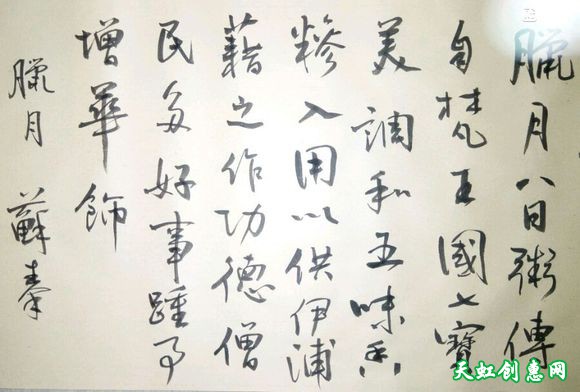 臘月八日粥傳
自梵王國七寶
美調和五味香
糝入用以供伊浦
藉之作功德僧
民多好事踵事
增華飾
臘月 蘇秦
天虹创惠网